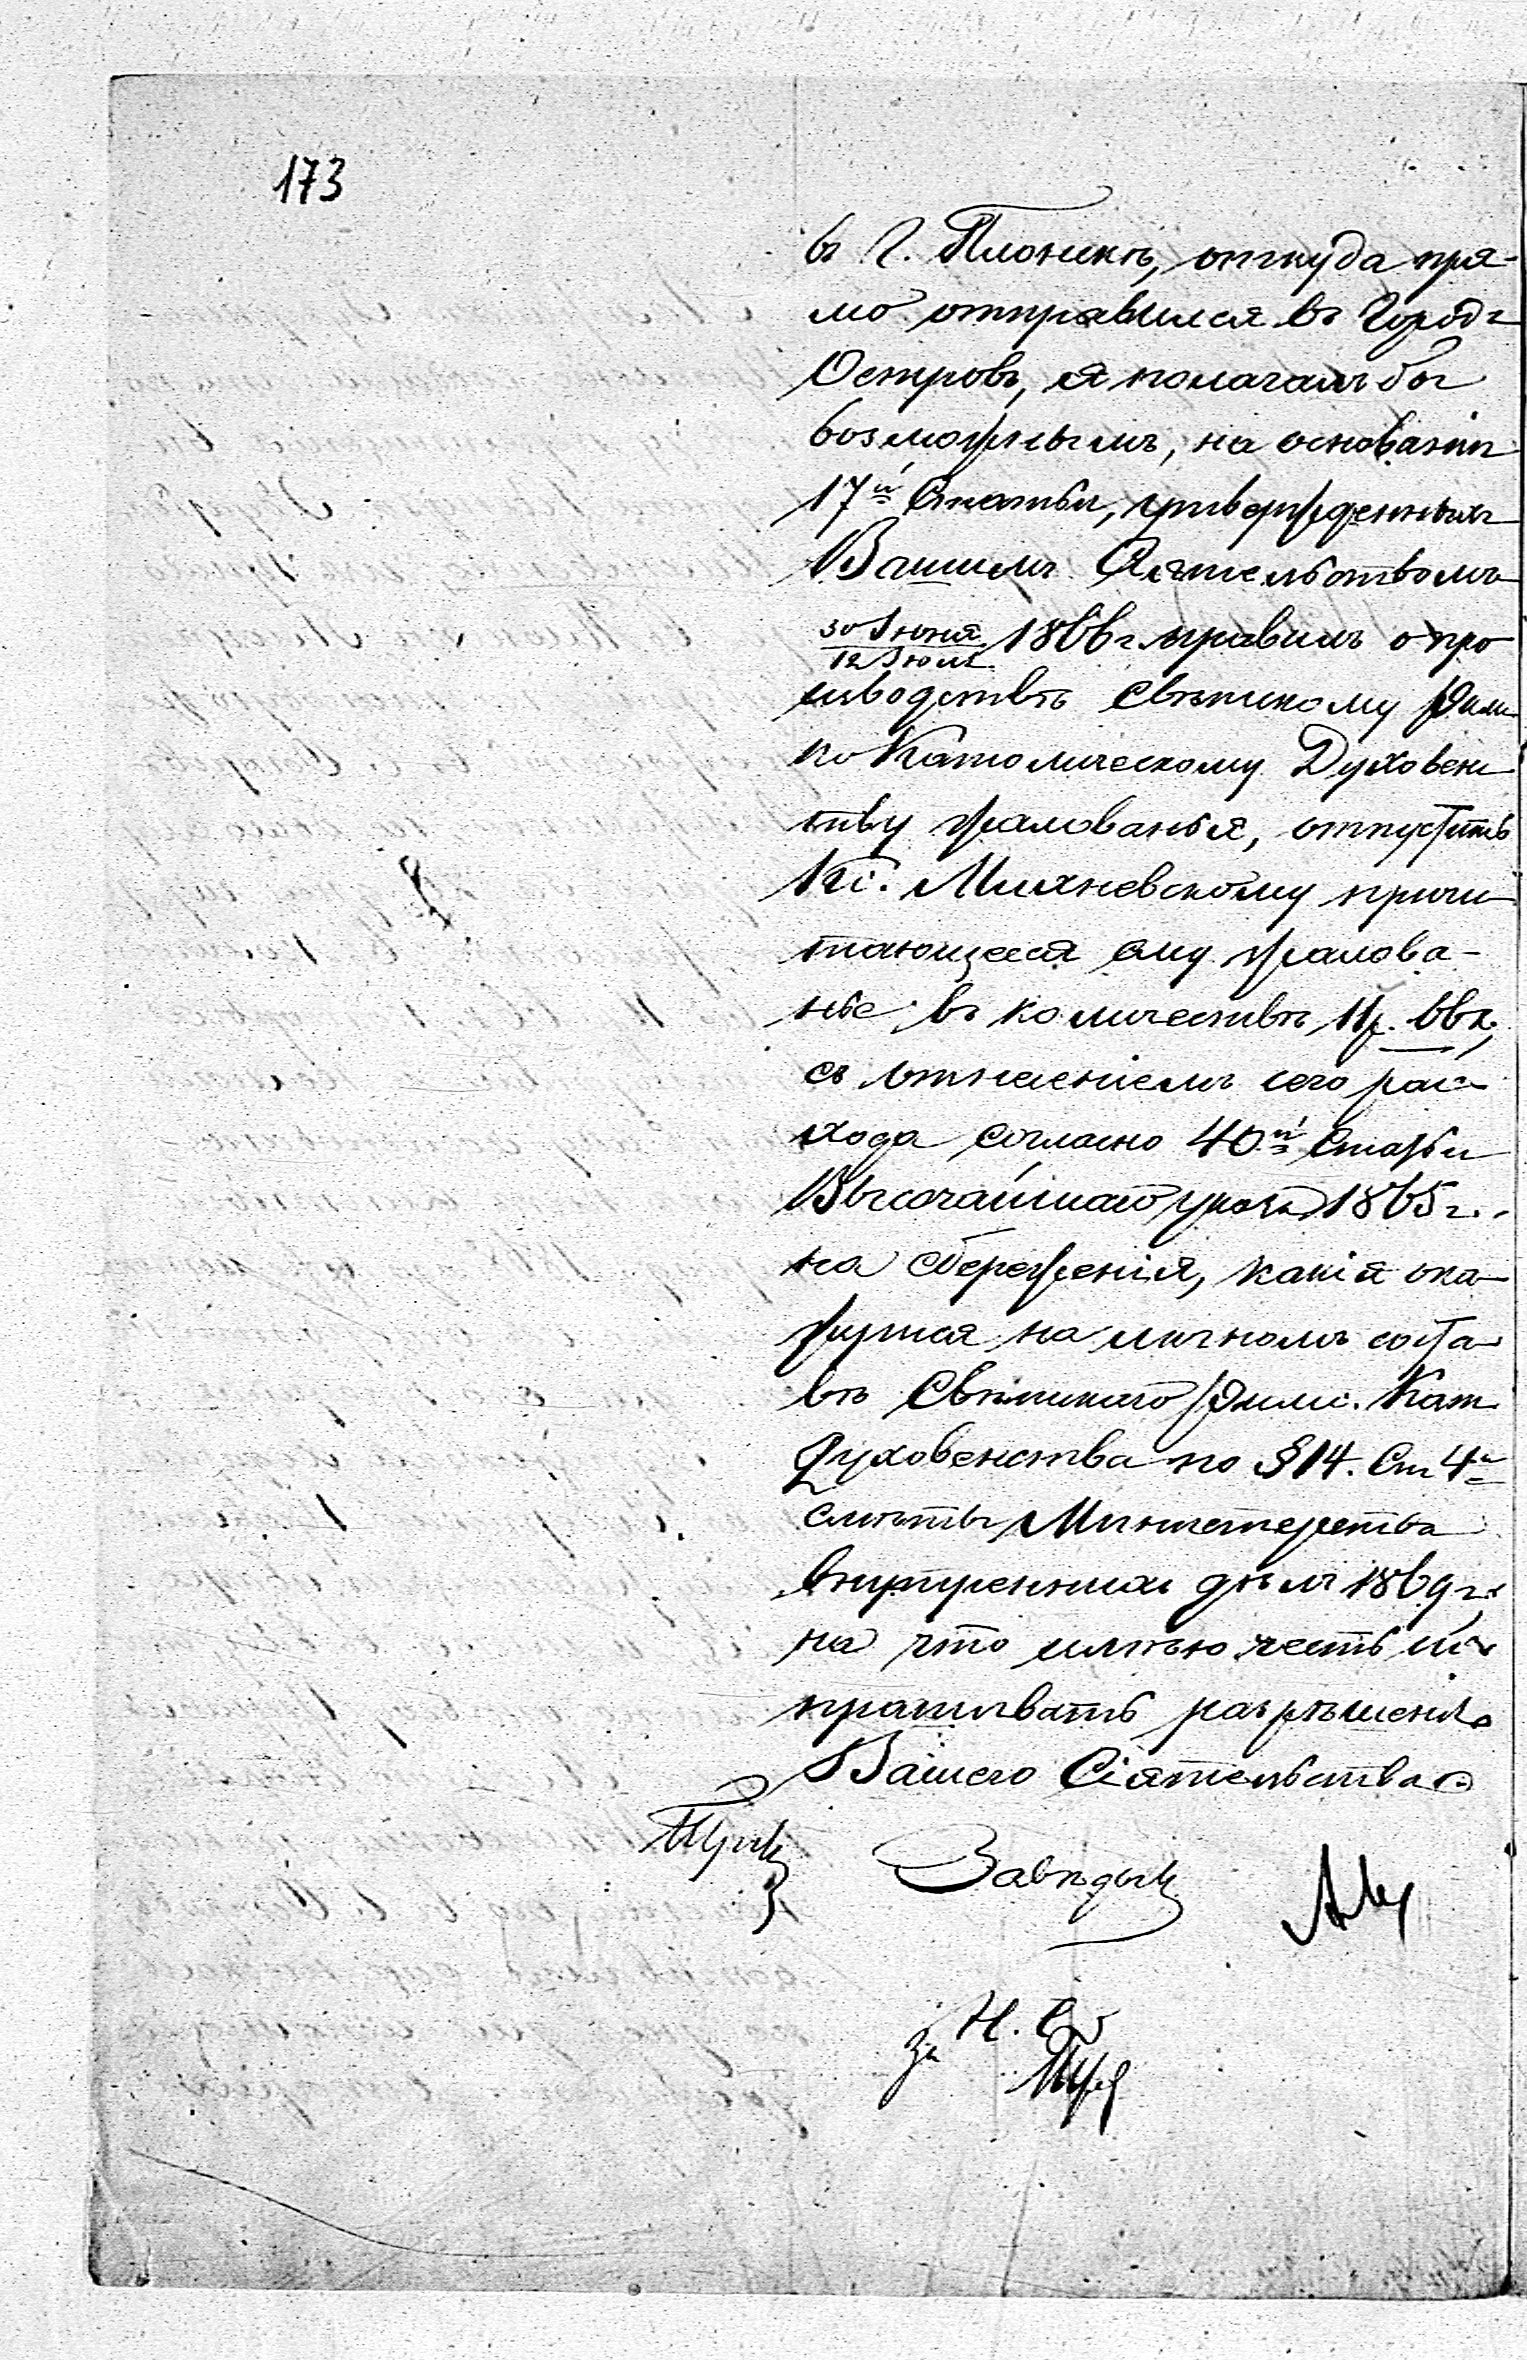 173
въ г. Плонскѣ, откуда пря-
мо отправился въ Городъ
Островъ, я полагалъ бы
возможнымъ, на основаніи
17й Статьи, утвержденныхъ
Вашимъ Сіятельствомъ
30 Іюня / 12 Іюля 1866 г. правилъ о про
изводствѣ свѣтскому Рим
ко Католическому Духовен
ству жалованья, отпустить
Кс. Михневскому причи
тающееся ему жалова-
нье въ количествѣ 11 р. 66 к.,
съ отнесеніемъ сего рас
хода согласно 40й Статьи
Высочайшаго указа 1865 г.
на сбереженія, какія ока
жутся на личномъ соста
вѣ Свѣтскаго Римс. Кат.
Духовенства по § 14. Ст 4й
смѣты Министерства
внутреннихъ дѣлъ 1869 г.,
на что имѣю честь ис
прашивать разрѣшенія
Вашего Сіятельства
Завѣдый
за Н. Ст